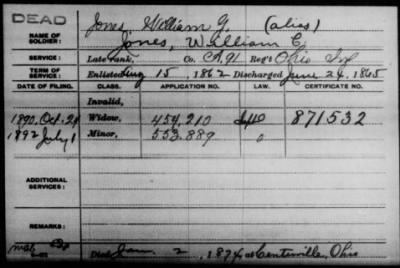 DEAD
Jones William G. (alias)
NAME OF SOLDIER:
Jones, William E.
SERVICE:
Late rank, Co. A, 91 Reg't Ohio Inf
TERM OF SERVICE:
Enlisted Aug 15, 1862 Discharged June 24, 1865
DATE OF FILING. CLASS. APPLICATION NO. LAW. CERTIFICATE NO.
Invalid,
1890, Oct. 21 Widow, 454,210 871532
1892 July 1 Minor, 553,889
ADDITIONAL SERVICES:
REMARKS:
Died Jan. 2, 1874, at Centerville, Ohio